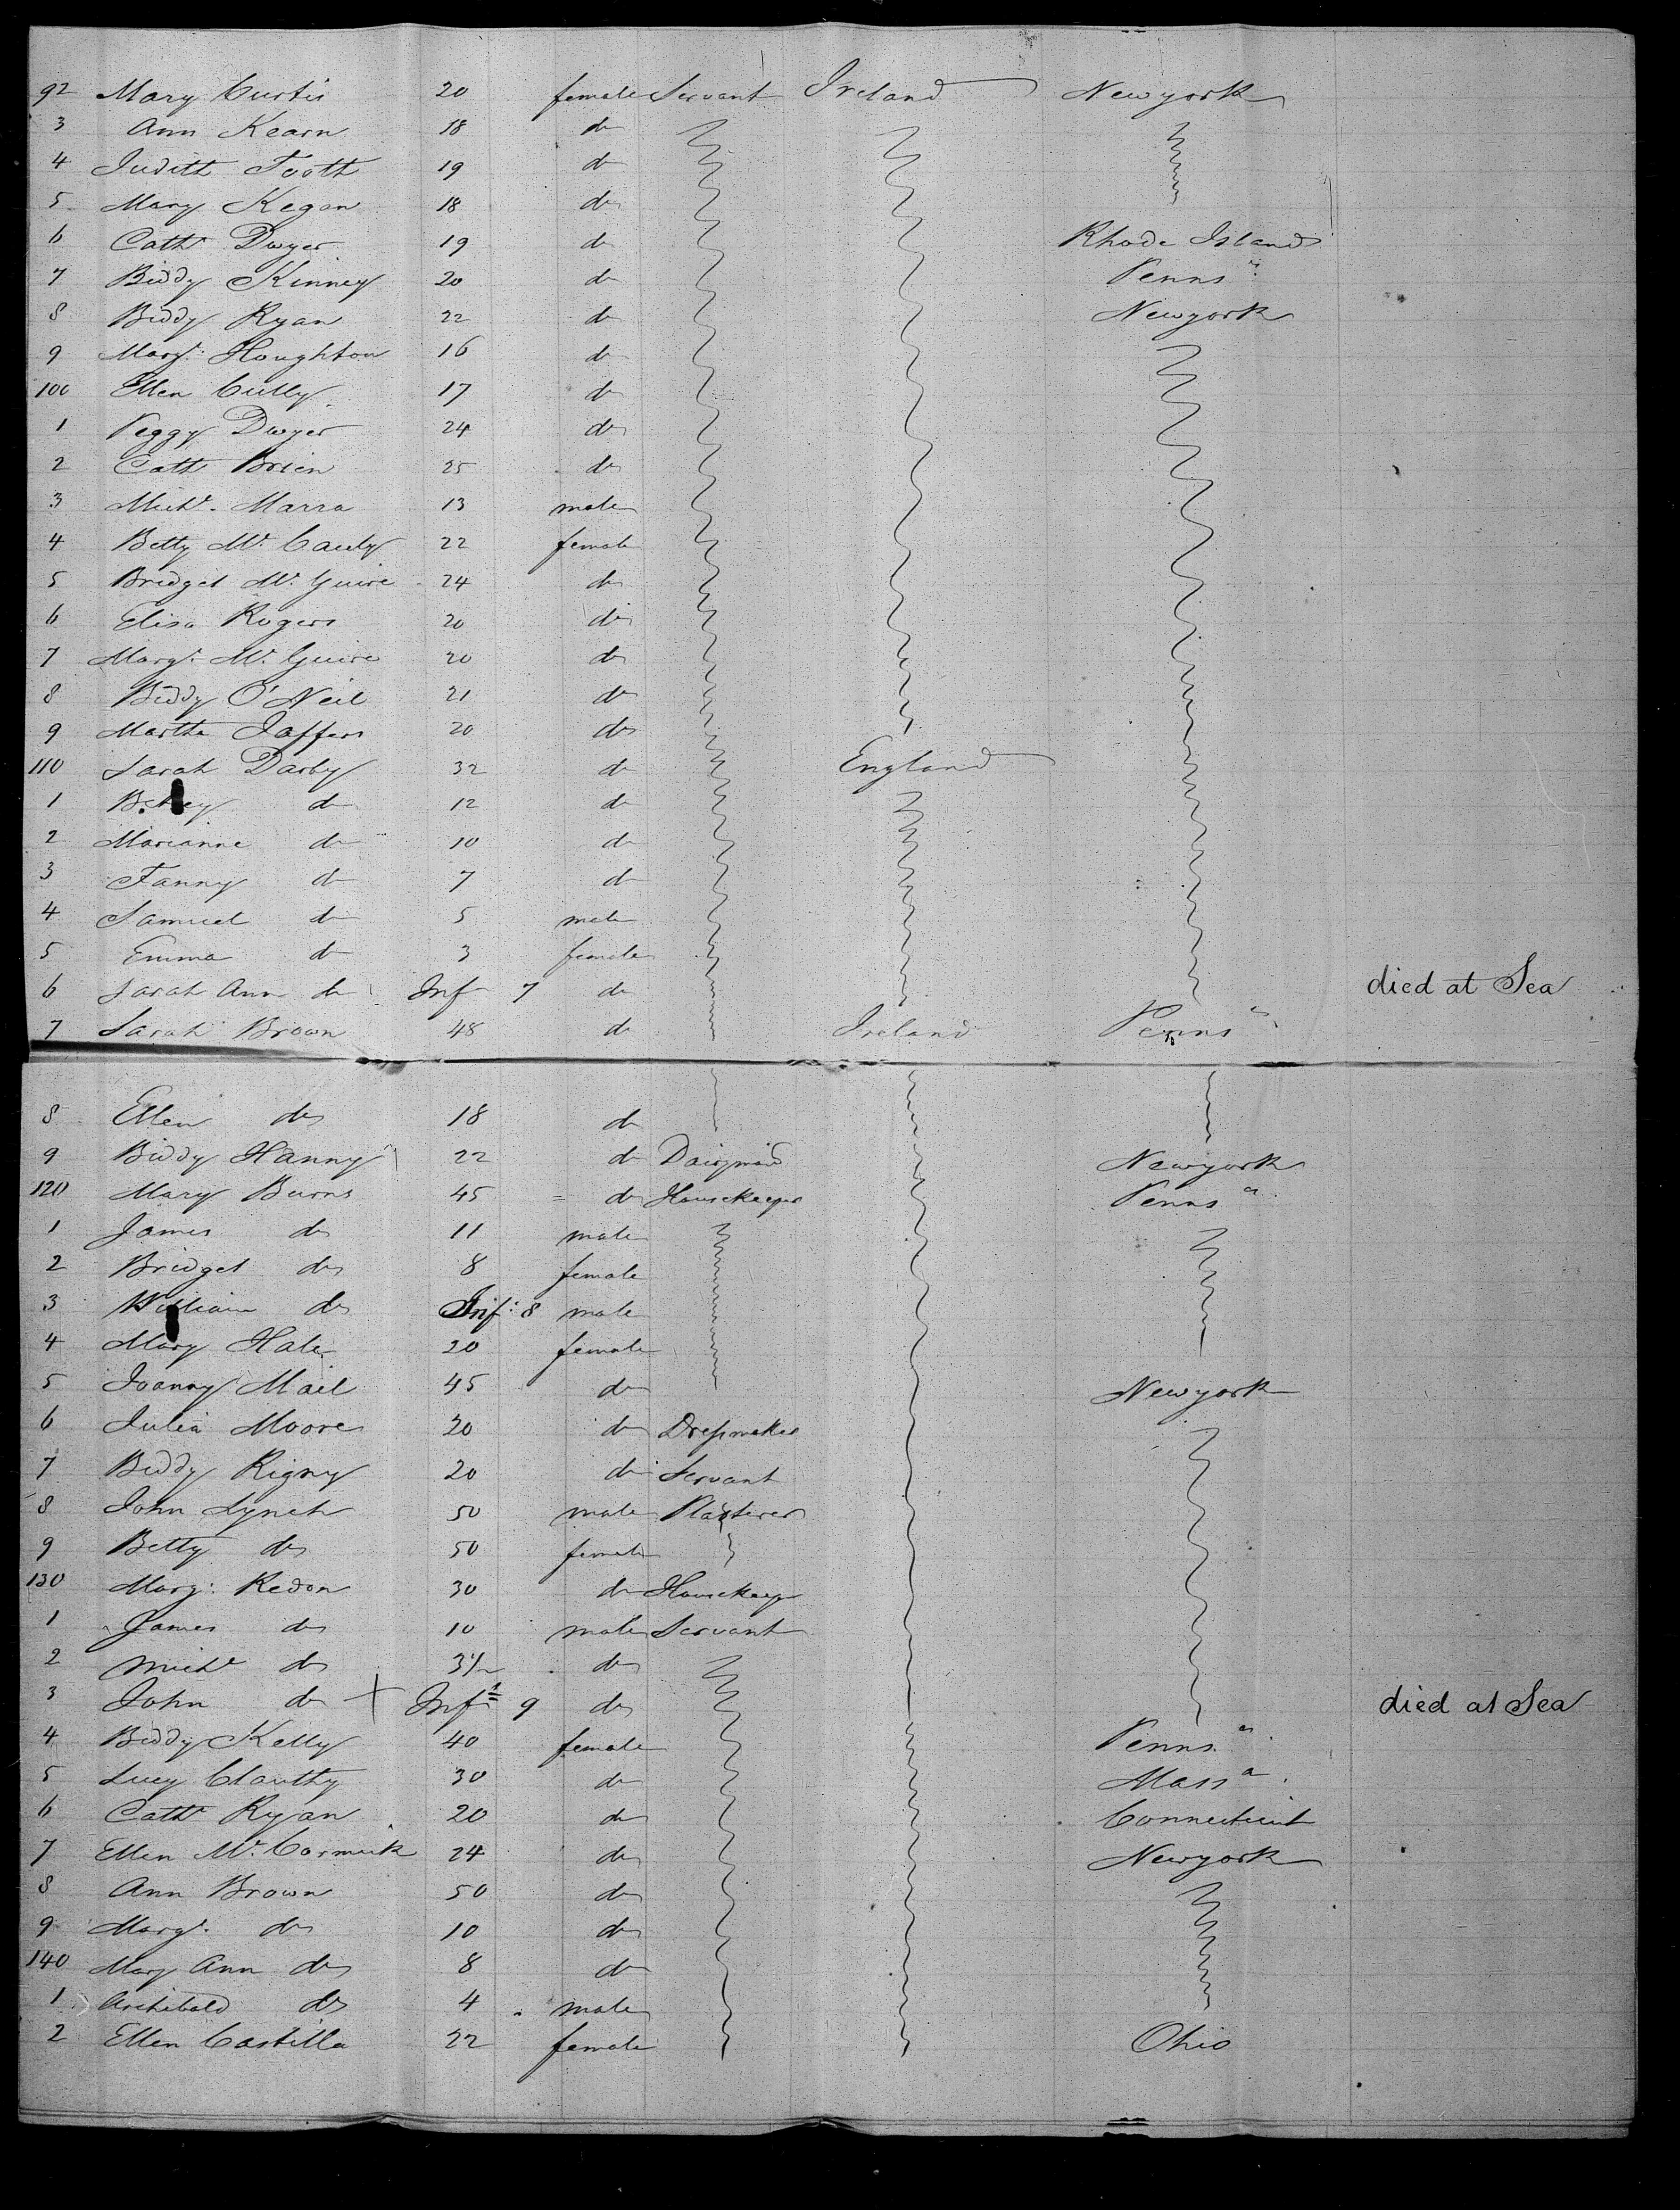 92 Mary Curtis 20 female Servant Ireland Newyork
3 Ann Kearn 18 do
4 Judith Tooth 19 do
5 Mary Kegan 18 do
6 Cath Dwyer 19 do Rhode Island
7 Biddy Kinney 20 do Penns a
8 Biddy Ryan 22 do Newyork
9 Margt. Houghton 16 do
100 Ellen Cully 17 do
1 Peggy Dwyer 24 do
2 Cath Brien 25 do
3 Michl. Marra 13 male
4 Betty Mc. Cauly 22 female
5 Bridget Mc. Guire 24 do
6 Elisa Rogers 20 do
7 Margt. Mc. Guire 20 do
8 Biddy O'Neil 21 do
9 Martha Jaffers 20 do
110 Sarah Darby 32 do England
1 do 12 do
2 Marianne do 10 do
3 Fanny do 7 do
4 Samuel do 5 male
5 Emma do 3 female
6 Sarah Ann do Inf 7 do died at Sea
7 Sarah Brown 48 do Ireland Penns a
8 Ellen do 18 do
9 Biddy Hanny 22 do Dairymaid Newyork
120 Mary Burns 45 do Housekeeper Penns a
1 James do 11 male
2 Bridget do 8 female
3 William do Inf: 8 male
4 Mary Hale 20 female
5 Joanny Mail 45 do Newyork
6 Julia Moore 20 do Dressmaker
7 Biddy Rigny 20 do Servant
8 John Lynch 50 male Plasterer
9 Betty do 50 female
130 Marg: Redon 30 do Housekeep
1 James do 10 male Servant
2 Michl do 3½ do
3 John do + Inft 9 do died at Sea
4 Biddy Kelly 40 female Penns. a
5 Lucy Clauthy 30 do Mass a.
6 Cath Ryan 20 do Connecticut
7 Ellen Mc. Cormick 24 do Newyork
8 Ann Brown 50 do
9 Margt. do 10 do
140 Mary Ann do 8 do
1 Archibald do 4 male
2 Ellen Castilla 22 female Ohio